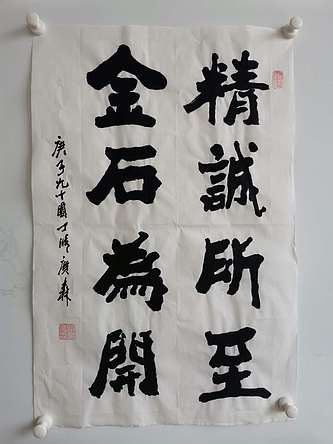 精誠所至
金石為開
庚子九十園丁廣森